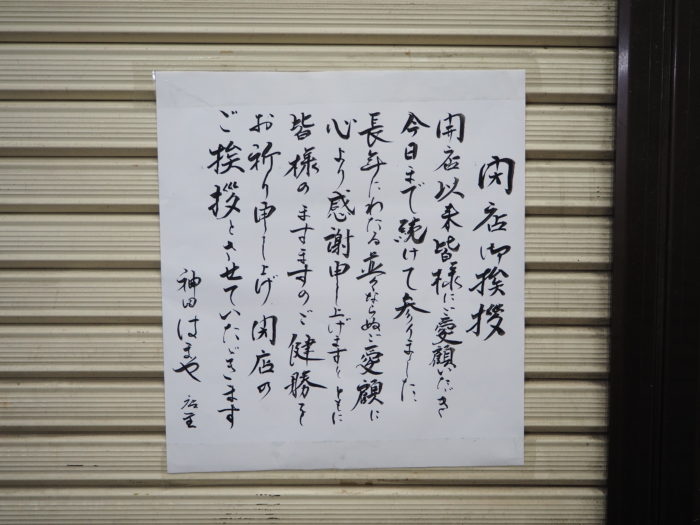 閉店御挨拶
開店以来皆様にご愛顧いただき
今日まで続けて参りました
長年にわたる並々ならぬご愛顧に
心より感謝申し上げますとともに
皆様のますますのご健勝を
お祈り申し上げ閉店の
ご挨拶とさせていただきます
神田はまや 店主